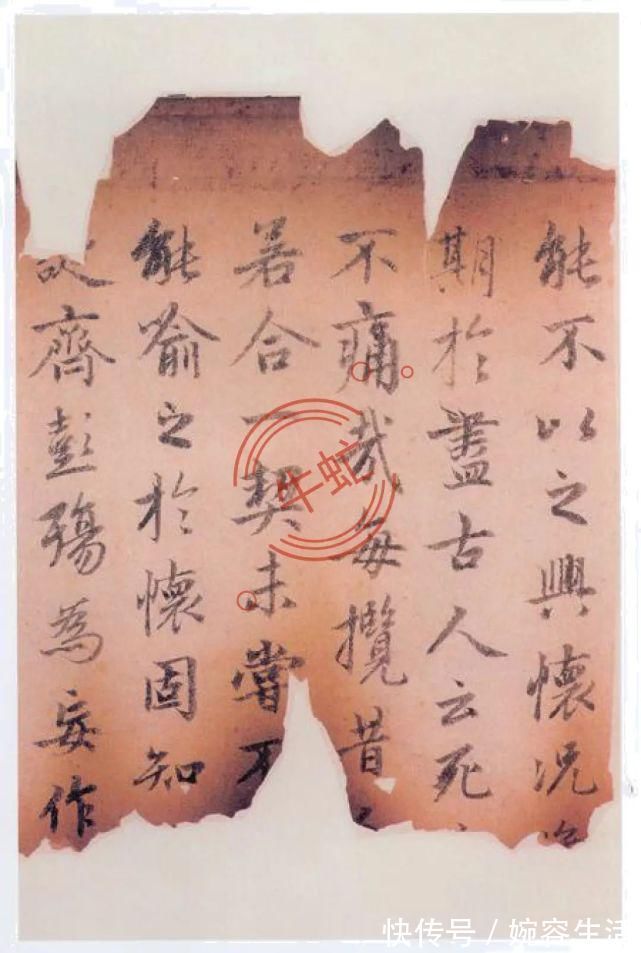 能不以之興懷况
期於盡古人云死
不痛哉每攬昔
若合一契未嘗不
能喻之於懷固知
齊彭殤為妄作
牛虻
快传号 / 婉容生活